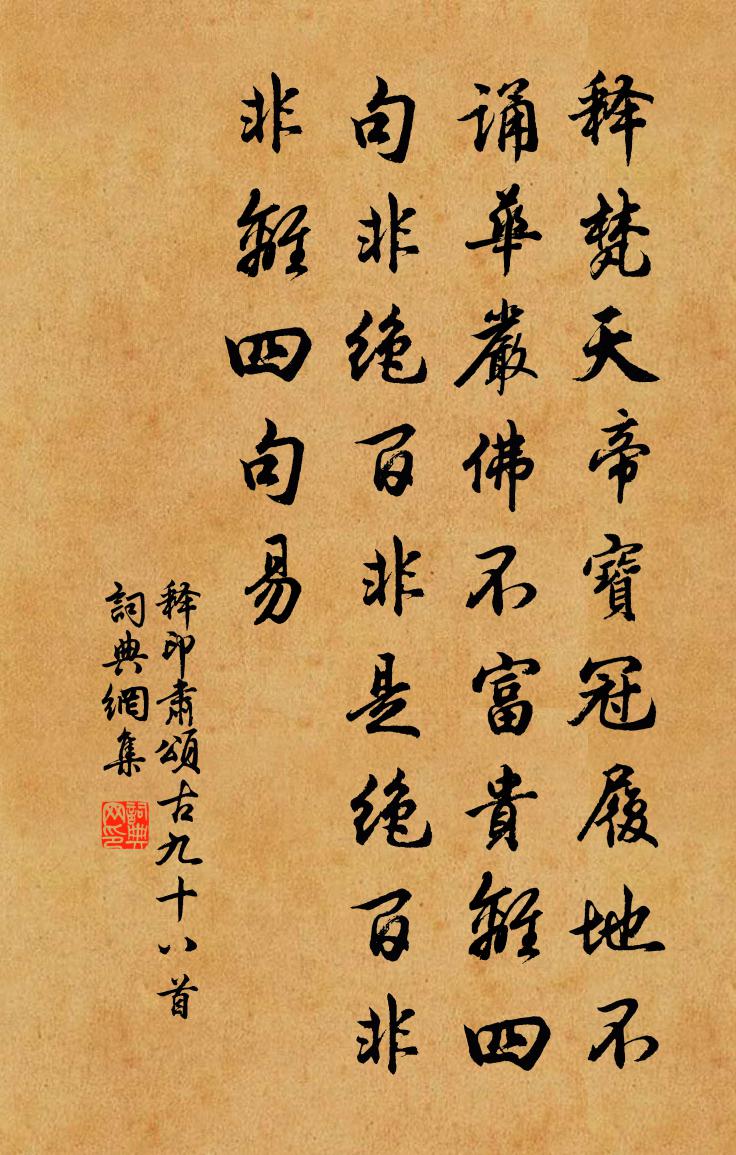 释梵天帝寶冠履地不
诵華嚴佛不富貴離四
句非绝百非非是绝百非
非離四句易
释印肅頌古九十八首
詞典網集
詞典网印